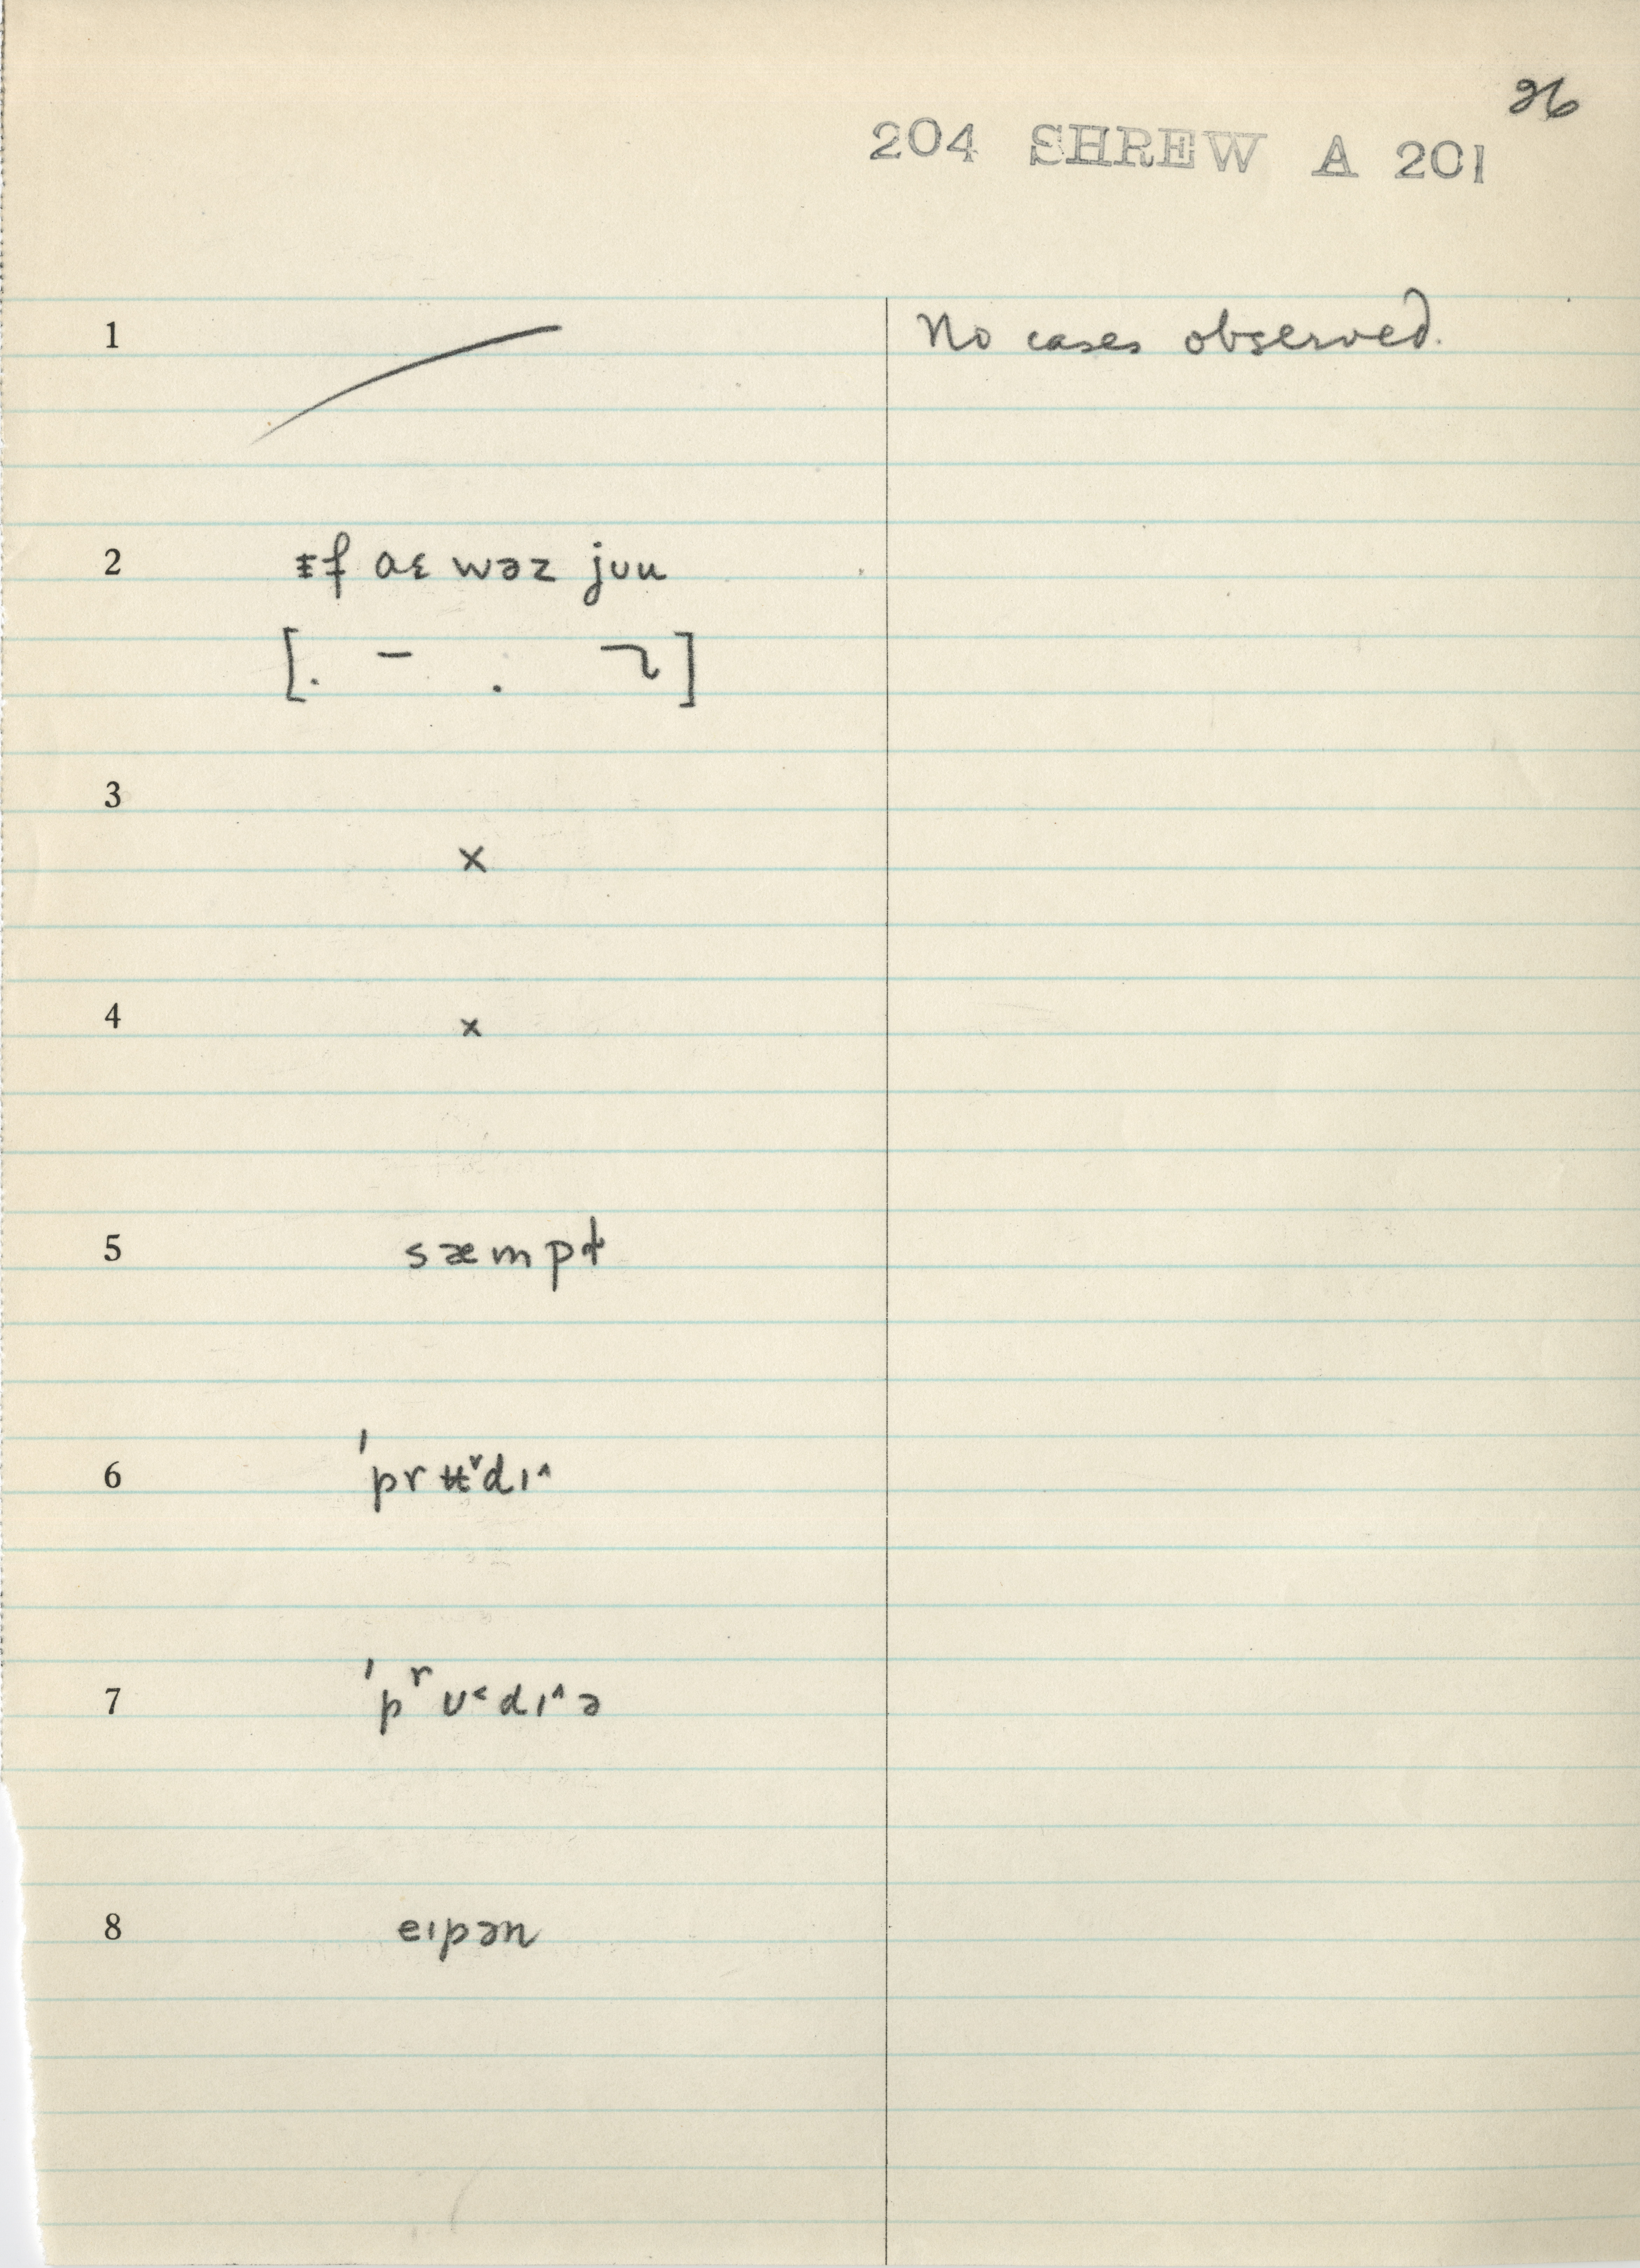 26
204 SHREW A 201
1 No cases observed.
2 ᵻf ɑɛ wəz jʊu
[. – . ]
3 ×
4 ×
5 sæmpɫ
6 ˈprʉt˅dɪ^
7 ˈpʳʊ˂dɪ^ə
8 eɪpən